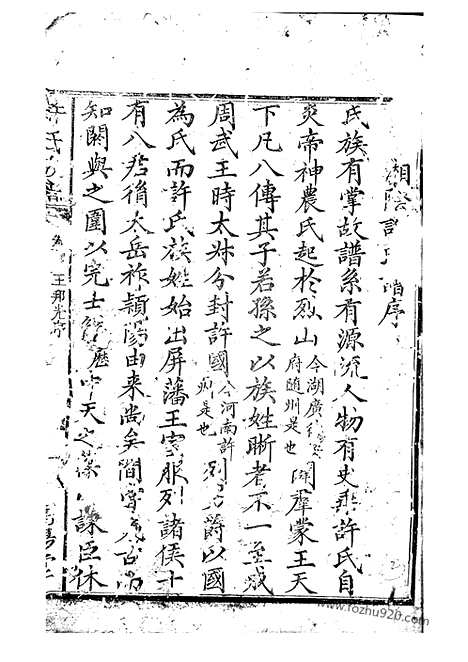 湘陰許氏譜序
氏族有掌故譜系有源流人物有史乘許氏自
炎帝神農氏起於烈山今湖廣府随州是也闢羣蒙王天
下凡八傳其子若孫之以族姓晰者不一至成
周武王時太叔分封許國今河南許州是也列爵以國
為氏而許氏族姓始出屏藩王室服列諸侯十
有八君循太岳祚穎陽由來尚矣間嘗
知閼與之圍以完士歷中天之謀臣休
許氏 譜
王邦光序
www.fozhu920.com